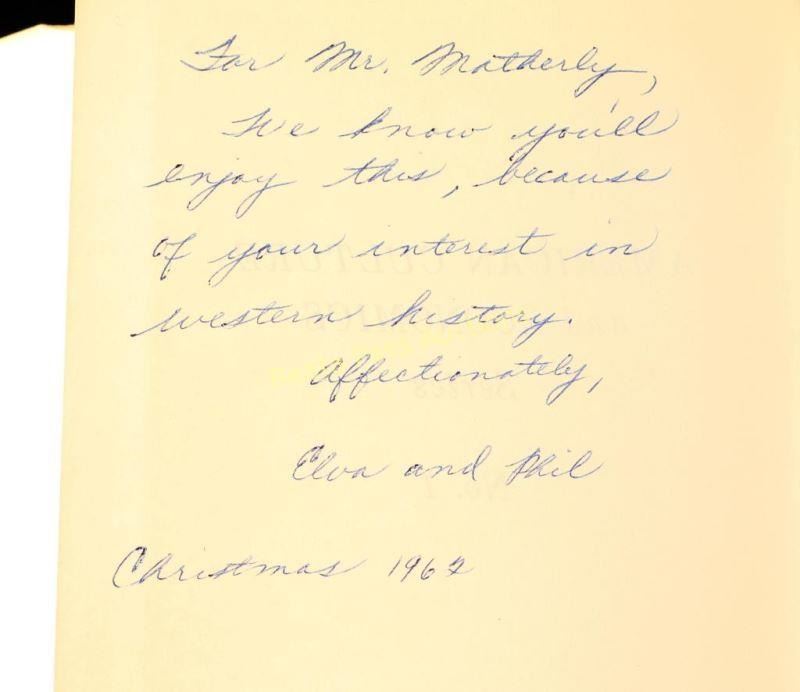 For Mr. Matherly,
We know you'll
enjoy this, because
of your interest in
western history.
Affectionately,
Elva and Phil
Christmas 1962